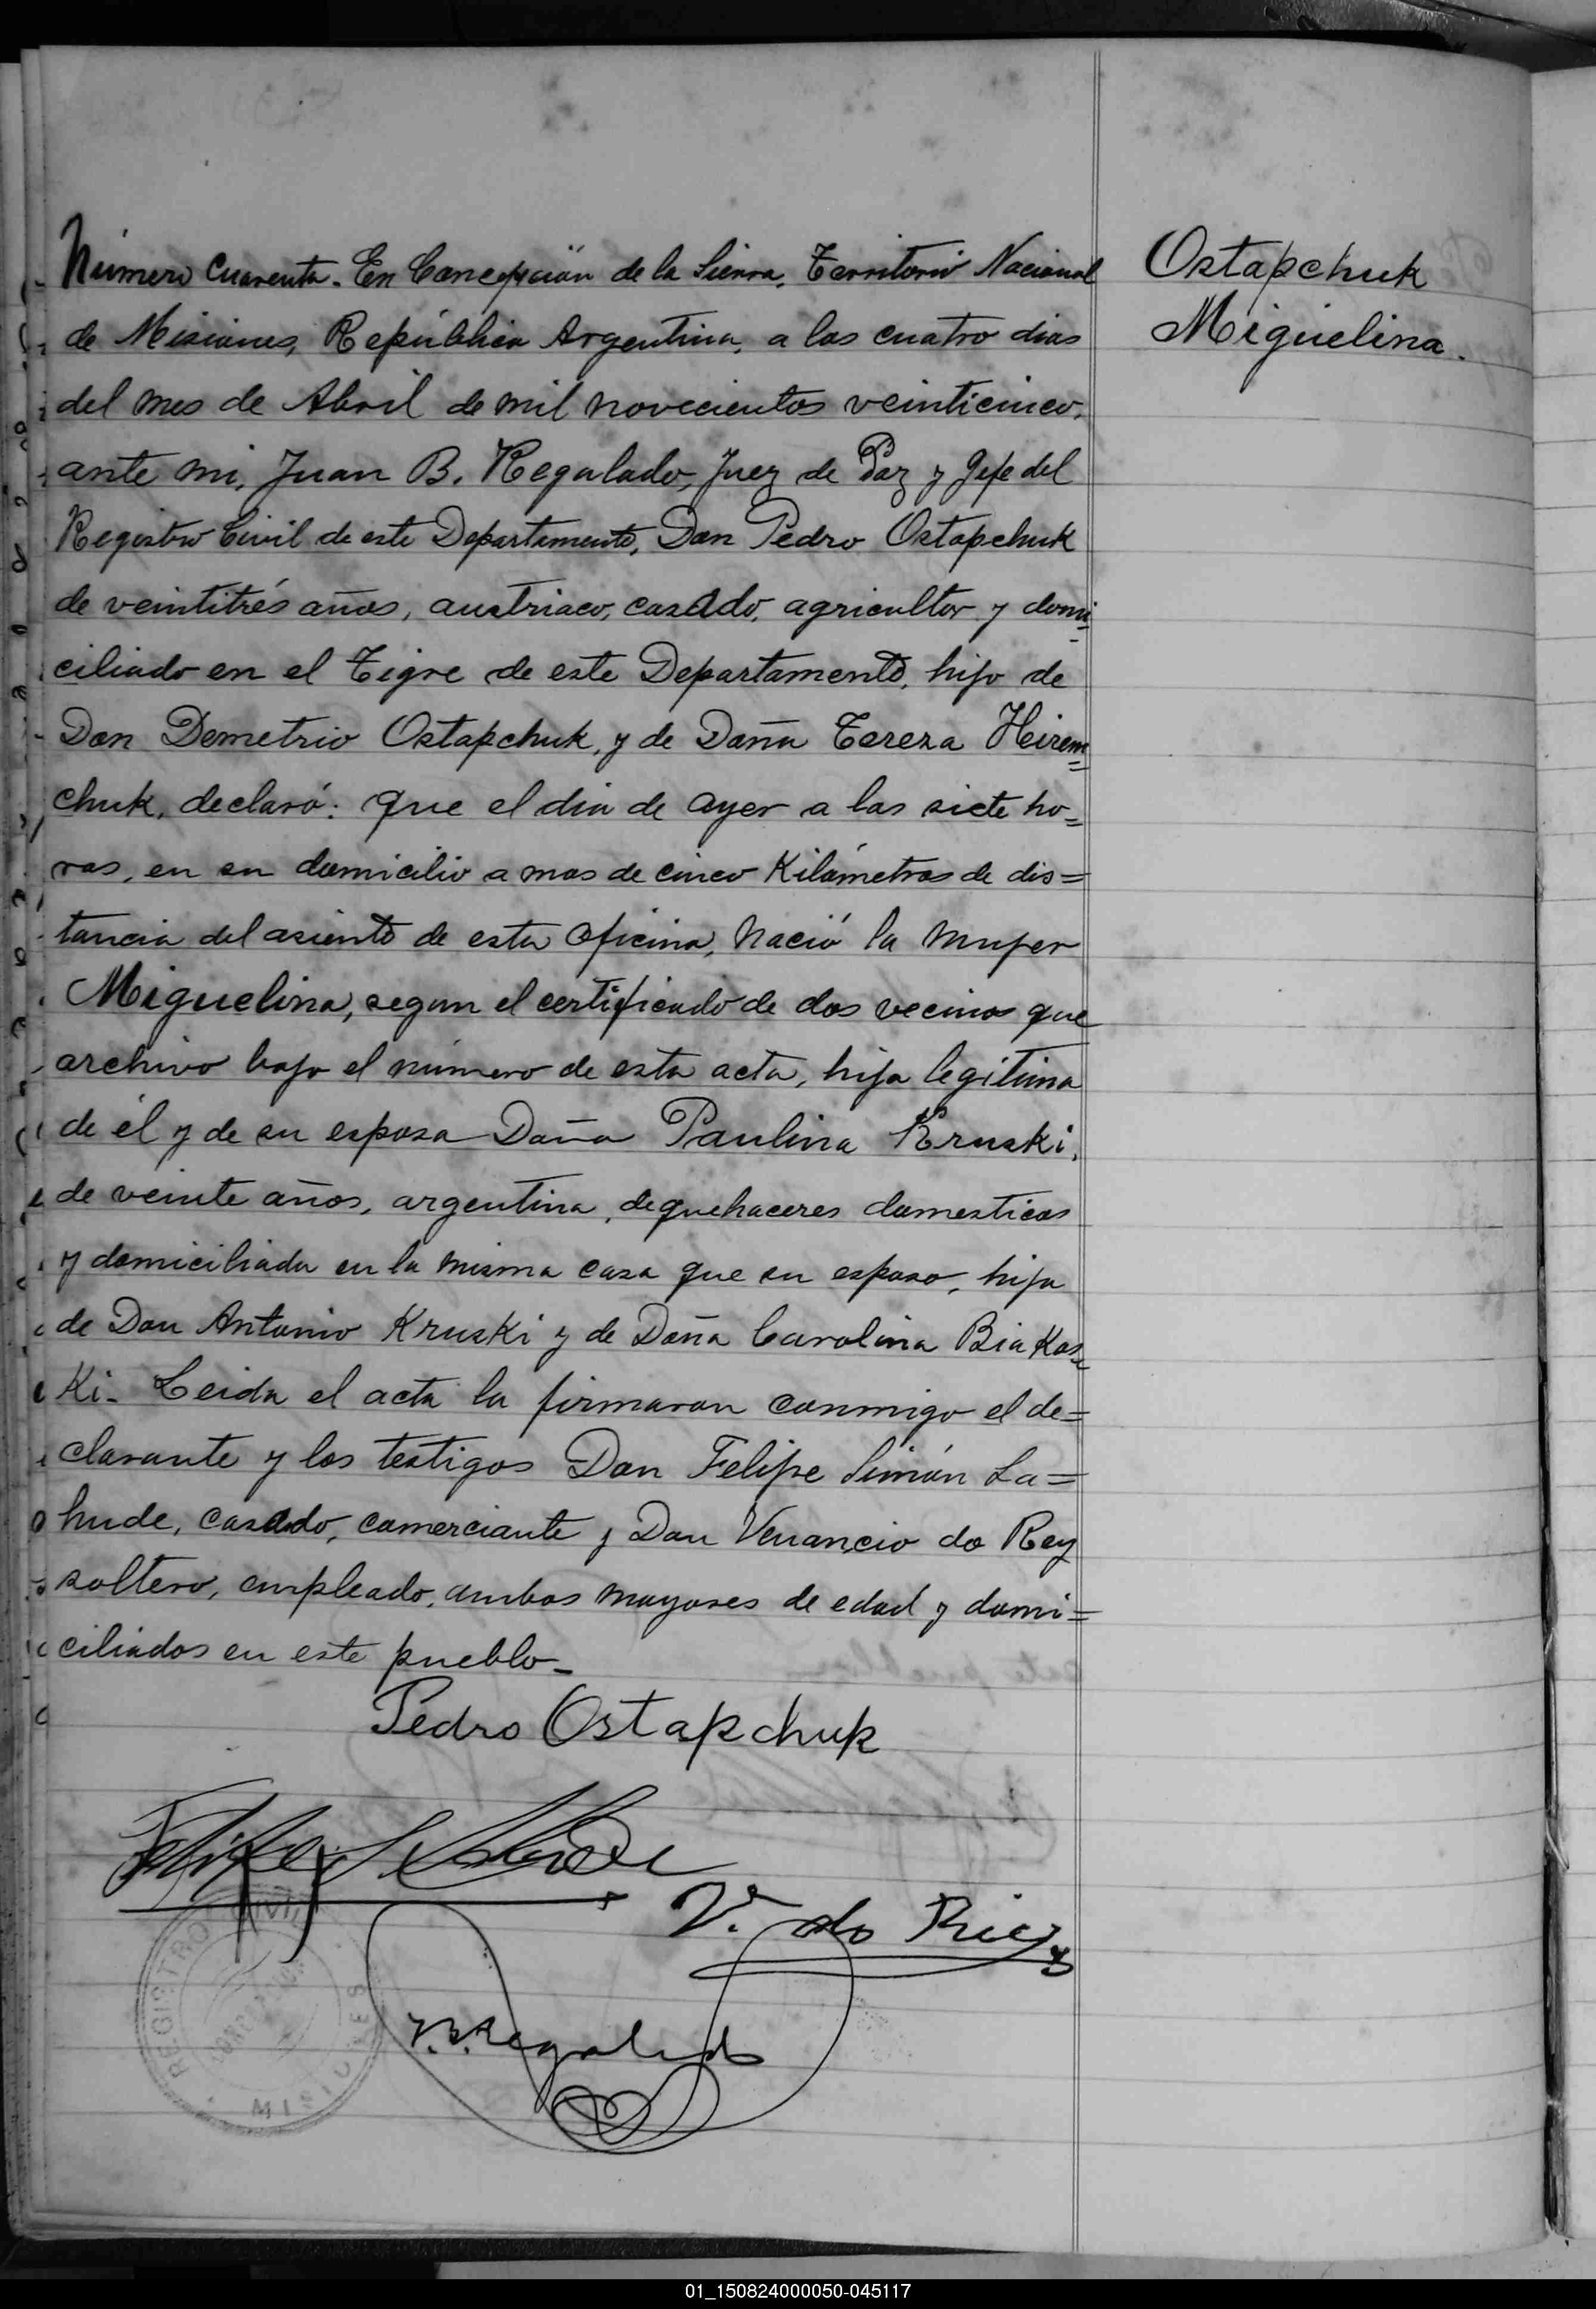 Número Cuarenta. En Concepción de la Sierra, Territorio Nacional
de Misiones, República Argentina, a los cuatro dias
del mes de Abril de mil novecientos veinticinco,
ante mi, Juan B. Regalado, Juez de Paz y Gefe del
Registro Civil de este Departamento, Don Pedro Ostapchuk
de veintitrés años, austriaco, casado, agricultor y domi
ciliado en el Tigre de este Departamento, hijo de
Don Demetrio Ostapchuk, y de Doña Tereza Heirem=
chuk, declaró: Que el dia de ayer a las siete ho=
ras, en su domicilio a mas de cinco Kilómetros de dis=
tancia del asiento de esta oficina, nació la mujer
Miguelina, segun el certificado de dos vecinos que
archivo bajo el número de esta acta, hija legítima
de él y de su esposa Doña Paulina Kruski,
de veinte años, argentina, de quehaceres domesticos
y domiciliada en la misma casa que su esposo, hija
de Don Antonio Kruski y de Doña Carolina Biakos=
Ki. Leida el acta la firmaron conmigo el de=
clarante y los testigos Don Felipe Simón La=
hude, casado, comerciante y Don Venancio do Rey
soltero, empleado, ambos mayores de edad y domi=
ciliados en este pueblo.
Pedro Ostapchuk
V. do Rey
J.B. Regalado
REGISTRO CIVIL
MISIONES
Ostapchuk
Miguelina.
01_150824000050-045117